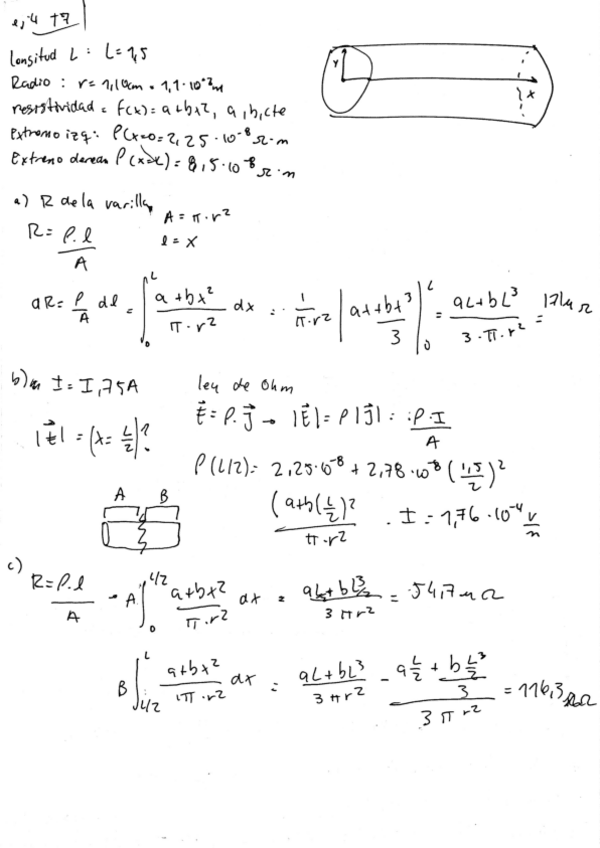 ej 4 t7
longitud L : L=1,5
Radio : r = 1,10cm = 1,1·10⁻²m
resistividad = f(x) = a+bx2, a,b,cte
Extremo izq: ρ(x=0=2,25·10⁻⁸ Ω·m
Extreno derean ρ(x=L)= 8,5·10⁻⁸ Ω·m
y
x
a) R de la varilla, A = π·r²
R = ρ.l / A
l = x
dR = ρ/A dl = ∫₀ᴸ (a+bx²)/(π·r²) dx = 1/(π·r²) |ax+bx³/3|₀ᴸ = (aL+bL³)/(3·π·r²) = 171μ Ω
b) I = I,75A ley de Ohm
|E⃗| = (x= L/2)? E⃗ = ρ.J⃗ → |E⃗| = ρ|J⃗| = ρ.I/A
ρ(L/2) = 2,25·10⁻⁸ + 2,78·10⁻⁸ (1,5/2)²
A B
(a+b(L/2)²/(π·r²) . I = 1,76·10⁻⁴ v/m
c)
R = ρ.l/A - A ∫₀^L/2 (a+bx²)/(π·r²) dx = (aL/2+bL³/2)/(3πr²) = 54,7 μΩ
B ∫_L/2^L (a+bx²)/(π·r²) dx = (aL+bL³)/(3πr²) - (aL/2 + (bL/2³)/3)/(3πr²) = 116,3 μΩ